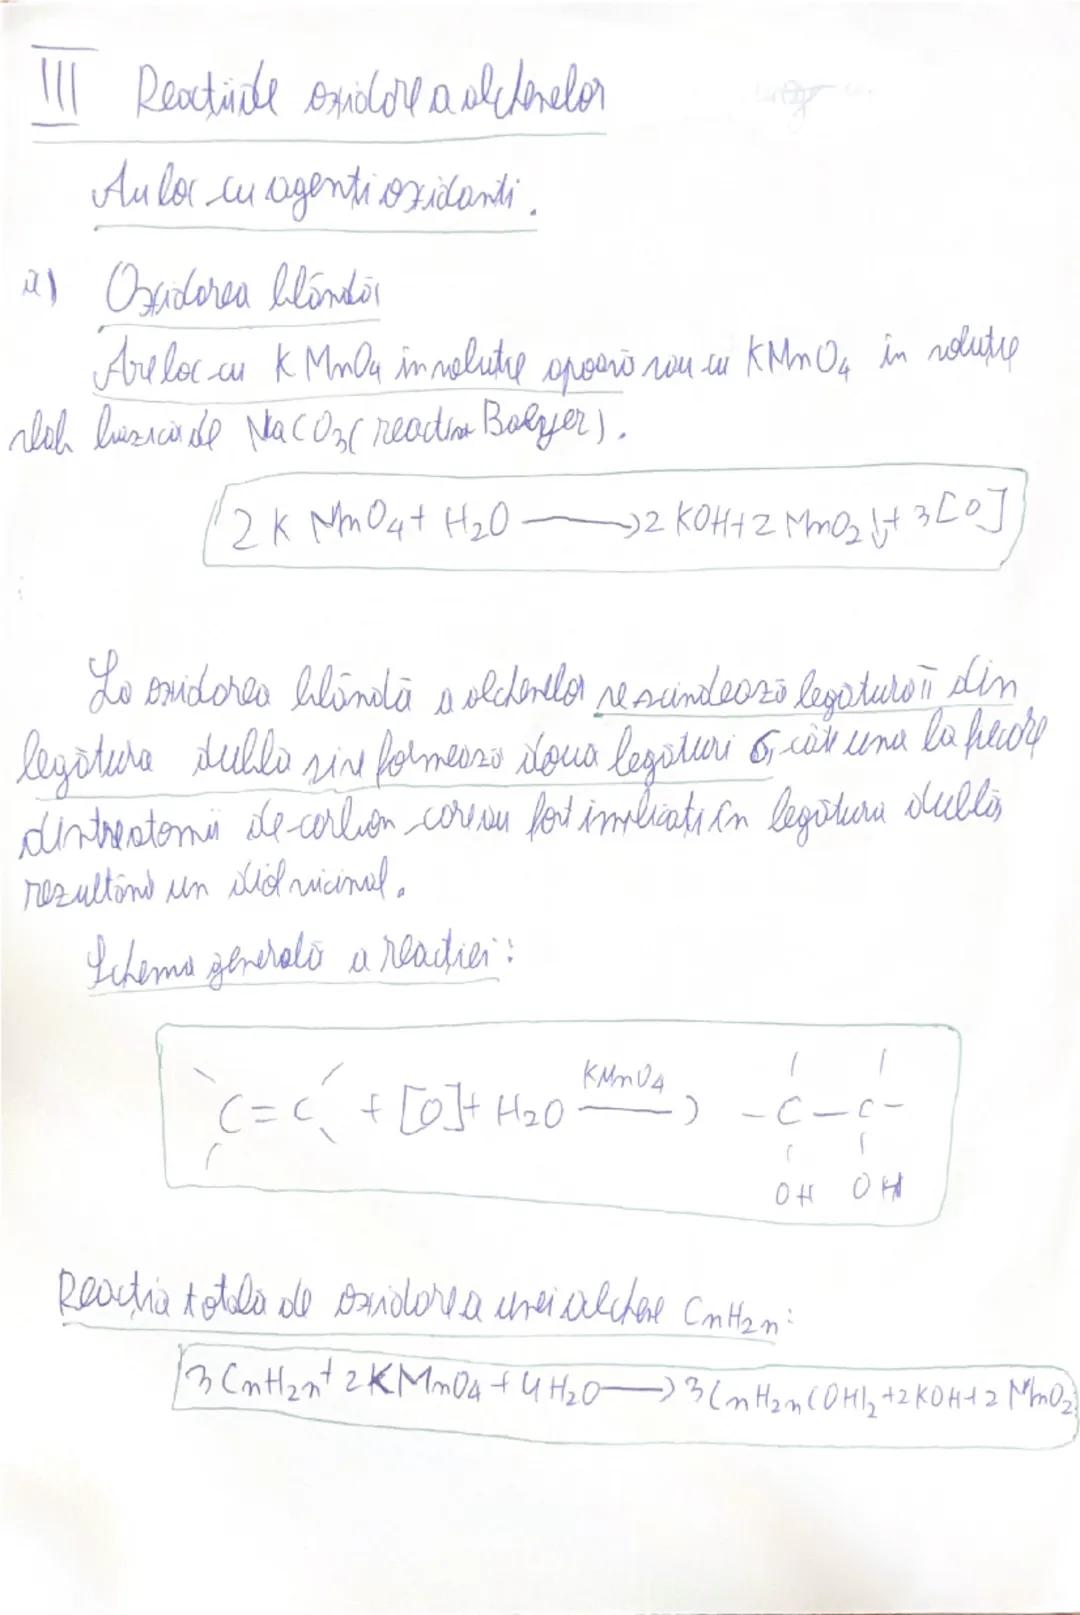 III Reacții de oxidare a alchenelor
Au loc cu agenți oxidanți.
a) Oxidarea blândă
Are loc cu KMnO4 în soluție apoasă sau cu KMnO4 în soluție
slab bazică de NaCO3 (reactiv Baeyer).
2 KMnO4 + H2O → 2 KOH + 2 MnO2↓ + 3[O]
La oxidarea blândă a alchenelor se scindează legătura π din
legătura dublă și se formează două legături σ, câte una la fiecare
dintre atomii de carbon care au fost implicați în legătura dublă
rezultând un diol vicinal.
Schema generală a reacției:
KMnO4
C=C + [O] + H2O → -C-C-
OH OH
Reacția totală de oxidare a unei alchene CnH2n:
3 CnH2n + 2KMnO4 + 4H2O → 3CnH2n(OH)2 + 2KOH + 2 MnO2